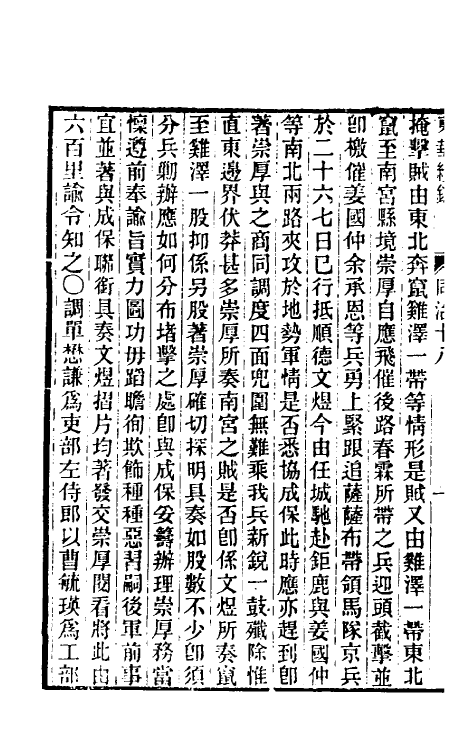 同治十八
掩擊賊由東北奔竄雞澤一帶等情形是賊又由雞澤一帶東北
竄至南宮縣境崇厚自應飛催後路春霖所帶之兵迎頭截擊並
卽檄催姜國仲余承恩等兵勇上緊跟追薩薩布帶領馬隊京兵
於二十六七日已行抵順德文煜今由任城馳赴鉅鹿與姜國仲
等南北兩路夾攻於地勢軍情是否悉協成保此時應亦趕到卽
著崇厚與之商同調度四面兜圍無難乘我兵新銳一鼓殲除惟
直東邊界伏莽甚多崇厚所奏南宮之賊是否卽係文煜所奏竄
至雞澤一股抑係另股著崇厚確切探明具奏如股數不少卽須
分兵勦辦應如何分布堵擊之處卽與成保妥籌辦理崇厚務當
懍遵前奉諭旨實力圖功毋蹈瞻徇欺飾種種惡習嗣後軍前事
宜並著與成保聯銜具奏文煜摺片均著發交崇厚閱看將此由
六百里諭令知之〇調單懋謙爲吏部左侍郎以曹毓瑛爲工部